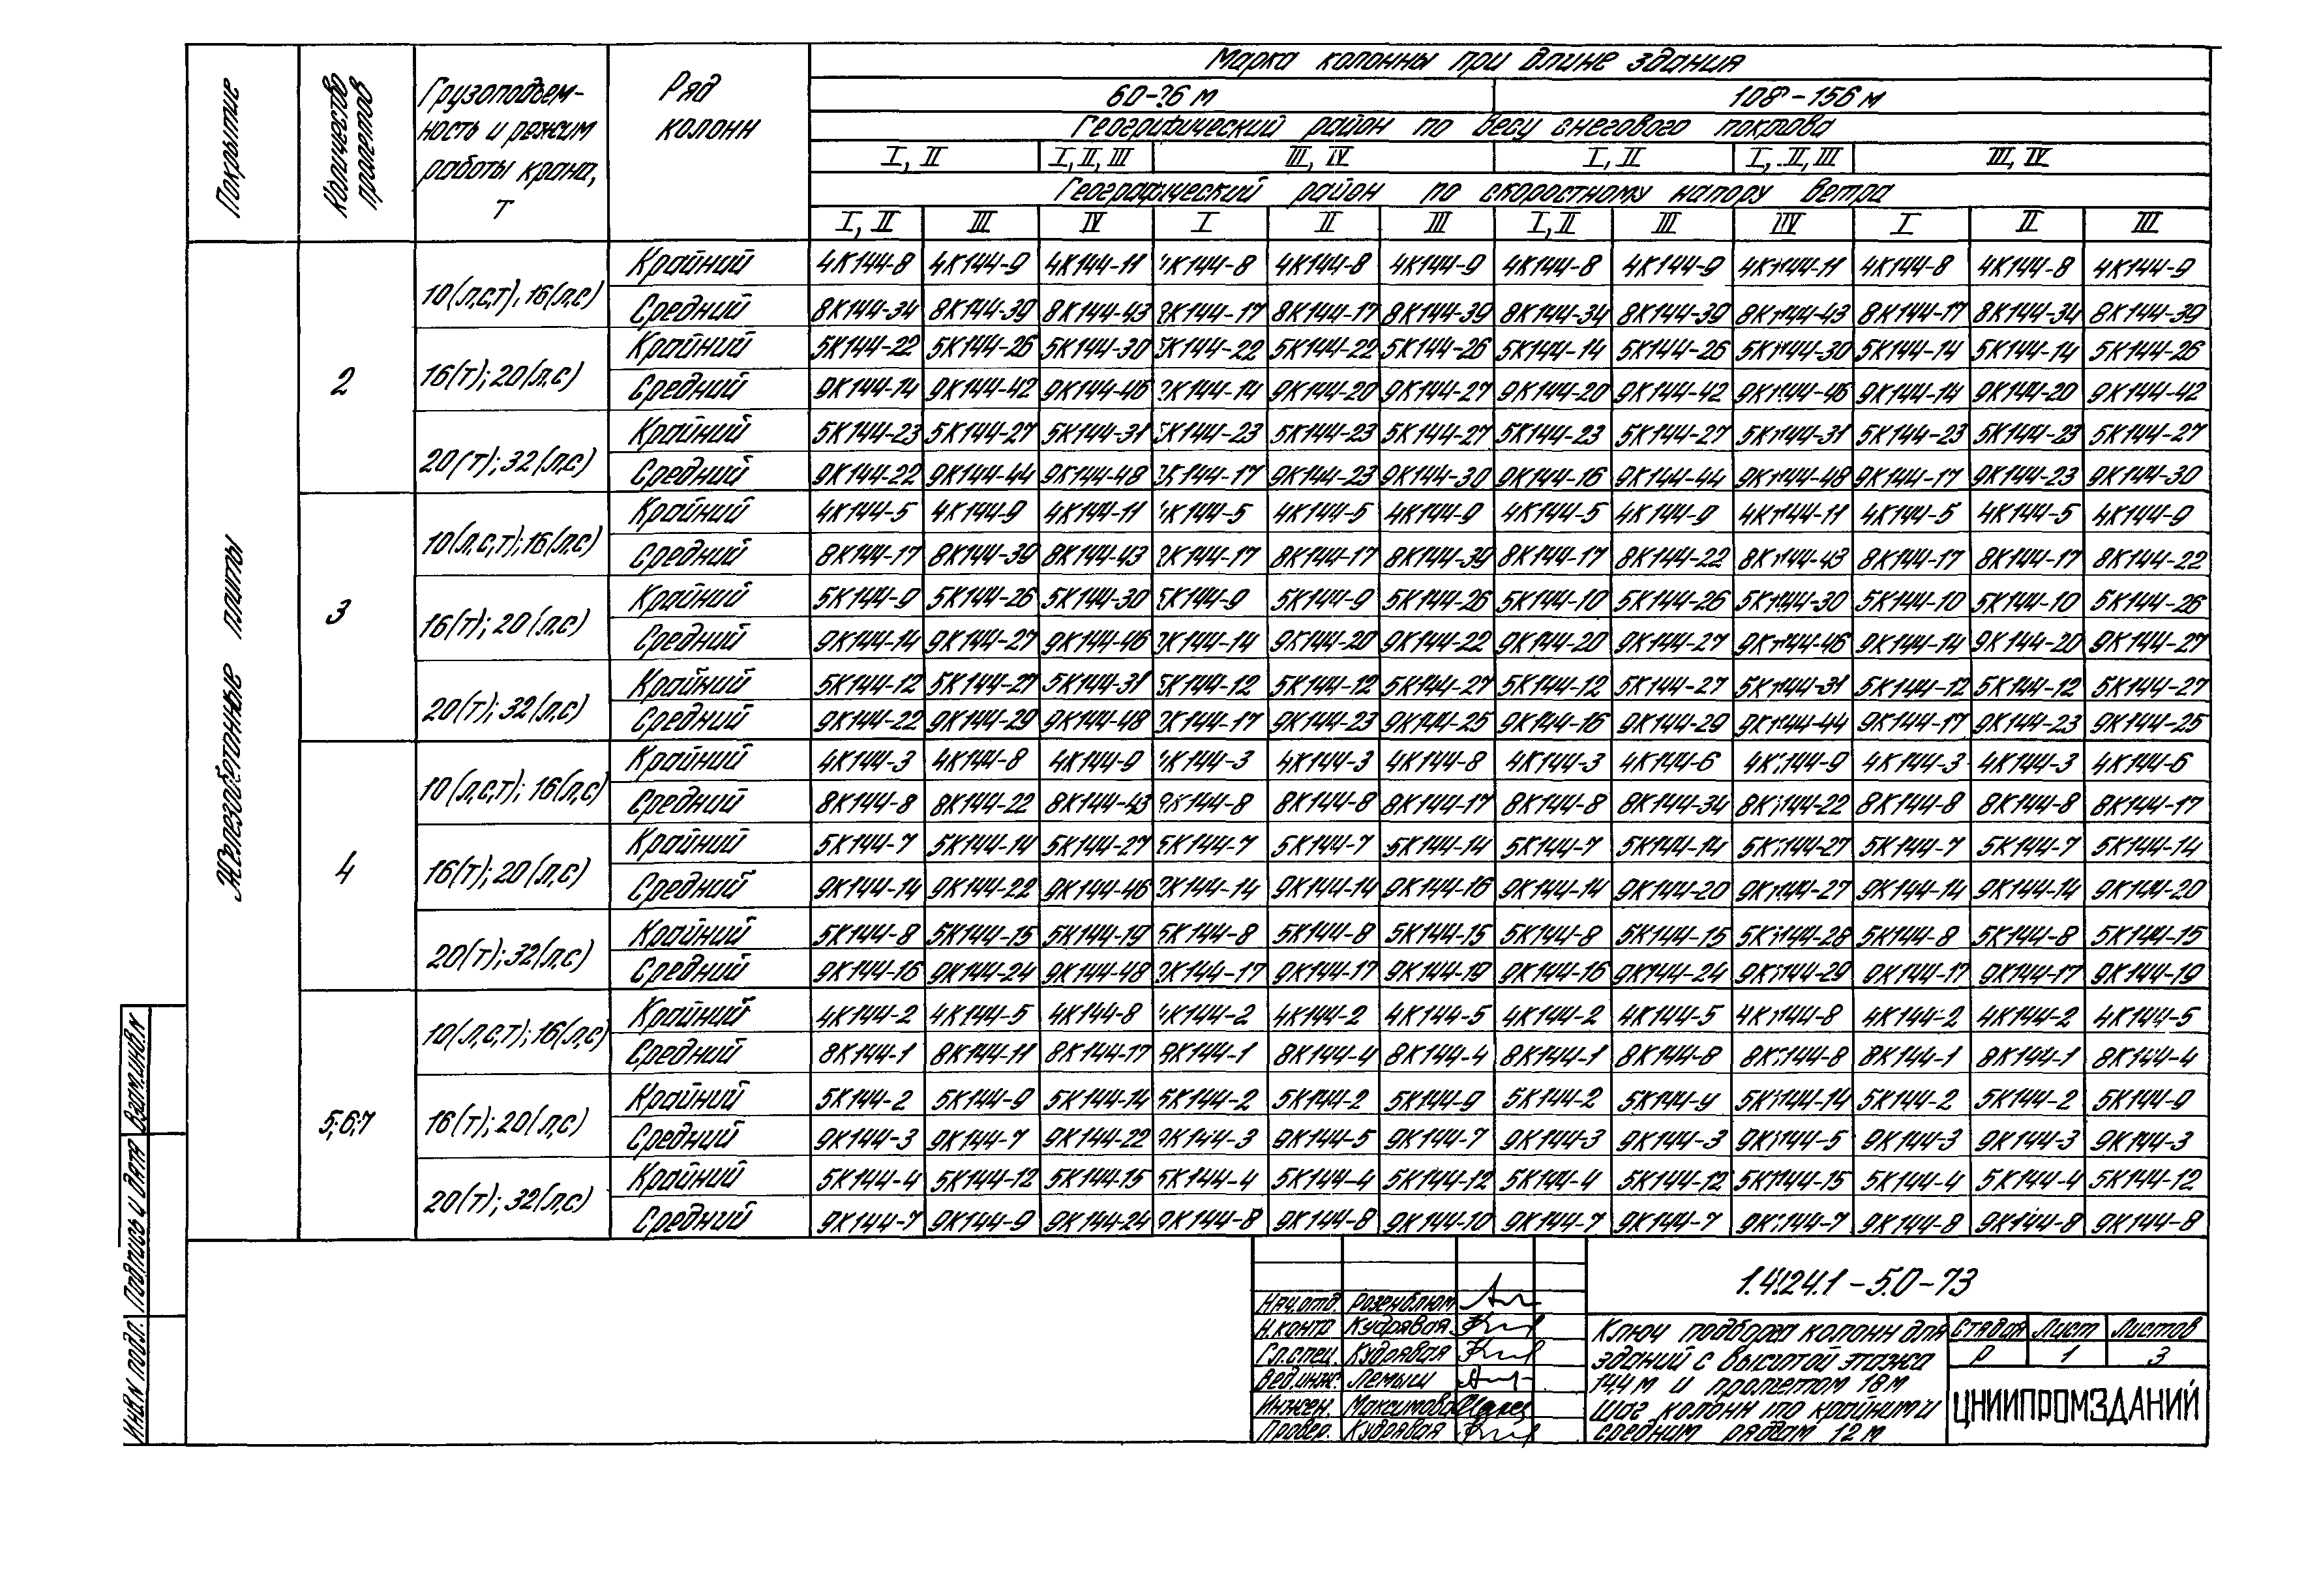 Покрытие
Количество пролетов
Грузоподъем-
ность и режим
работы крана,
т
Ряд
колонн
Марка колонны при длине здания
60-96 м 108-156 м
Географический район по весу снегового покрова
I, II I, II, III III, IV I, II I, II, III III, IV
Географический район по скоростному напору ветра
I, II III IV I II III I, II III IV I II III
Железобетонные плиты
2
10(л,с,т), 16(л,с)
Крайний 4К144-8 4К144-9 4К144-11 4К144-8 4К144-8 4К144-9 4К144-8 4К144-9 4К144-11 4К144-8 4К144-8 4К144-9
Средний 8К144-34 8К144-39 8К144-43 8К144-17 8К144-17 8К144-39 8К144-34 8К144-39 8К144-43 8К144-17 8К144-34 8К144-39
16(т); 20(л,с)
Крайний 5К144-22 5К144-26 5К144-30 5К144-22 5К144-22 5К144-26 5К144-14 5К144-26 5К144-30 5К144-14 5К144-14 5К144-26
Средний 9К144-14 9К144-42 9К144-46 9К144-14 9К144-20 9К144-27 9К144-20 9К144-42 9К144-46 9К144-14 9К144-20 9К144-42
20(т); 32(л,с)
Крайний 5К144-23 5К144-27 5К144-31 5К144-23 5К144-23 5К144-27 5К144-23 5К144-27 5К144-31 5К144-23 5К144-23 5К144-27
Средний 9К144-22 9К144-44 9К144-48 9К144-17 9К144-23 9К144-30 9К144-16 9К144-44 9К144-48 9К144-17 9К144-23 9К144-30
3
10(л,с,т); 16(л,с)
Крайний 4К144-5 4К144-9 4К144-11 4К144-5 4К144-5 4К144-9 4К144-5 4К144-9 4К144-11 4К144-5 4К144-5 4К144-9
Средний 8К144-17 8К144-39 8К144-43 8К144-17 8К144-17 8К144-39 8К144-17 8К144-22 8К144-43 8К144-17 8К144-17 8К144-22
16(т); 20(л,с)
Крайний 5К144-9 5К144-26 5К144-30 5К144-9 5К144-9 5К144-26 5К144-10 5К144-26 5К144-30 5К144-10 5К144-10 5К144-26
Средний 9К144-14 9К144-27 9К144-46 9К144-14 9К144-20 9К144-22 9К144-20 9К144-27 9К144-46 9К144-14 9К144-20 9К144-27
20(т); 32(л,с)
Крайний 5К144-12 5К144-27 5К144-31 5К144-12 5К144-12 5К144-27 5К144-12 5К144-27 5К144-31 5К144-12 5К144-12 5К144-27
Средний 9К144-22 9К144-29 9К144-48 9К144-17 9К144-23 9К144-25 9К144-16 9К144-29 9К144-44 9К144-17 9К144-23 9К144-25
4
10(л,с,т); 16(л,с)
Крайний 4К144-3 4К144-8 4К144-9 4К144-3 4К144-3 4К144-8 4К144-3 4К144-6 4К144-9 4К144-3 4К144-3 4К144-6
Средний 8К144-8 8К144-22 8К144-43 8К144-8 8К144-8 8К144-17 8К144-8 8К144-34 8К144-22 8К144-8 8К144-8 8К144-17
16(т); 20(л,с)
Крайний 5К144-7 5К144-14 5К144-27 5К144-7 5К144-7 5К144-14 5К144-7 5К144-14 5К144-27 5К144-7 5К144-7 5К144-14
Средний 9К144-14 9К144-22 9К144-46 9К144-14 9К144-14 9К144-16 9К144-14 9К144-20 9К144-27 9К144-14 9К144-14 9К144-20
20(т); 32(л,с)
Крайний 5К144-8 5К144-15 5К144-19 5К144-8 5К144-8 5К144-15 5К144-8 5К144-15 5К144-28 5К144-8 5К144-8 5К144-15
Средний 9К144-16 9К144-24 9К144-48 9К144-17 9К144-17 9К144-19 9К144-16 9К144-24 9К144-29 9К144-17 9К144-17 9К144-19
5;6;7
10(л,с,т); 16(л,с)
Крайний 4К144-2 4К144-5 4К144-8 4К144-2 4К144-2 4К144-5 4К144-2 4К144-5 4К144-8 4К144-2 4К144-2 4К144-5
Средний 8К144-1 8К144-11 8К144-17 8К144-1 8К144-4 8К144-4 8К144-1 8К144-8 8К144-8 8К144-1 8К144-1 8К144-4
16(т); 20(л,с)
Крайний 5К144-2 5К144-9 5К144-14 5К144-2 5К144-2 5К144-9 5К144-2 5К144-9 5К144-14 5К144-2 5К144-2 5К144-9
Средний 9К144-3 9К144-7 9К144-22 9К144-3 9К144-5 9К144-7 9К144-3 9К144-3 9К144-5 9К144-3 9К144-3 9К144-3
20(т); 32(л,с)
Крайний 5К144-4 5К144-12 5К144-15 5К144-4 5К144-4 5К144-12 5К144-4 5К144-12 5К144-15 5К144-4 5К144-4 5К144-12
Средний 9К144-7 9К144-9 9К144-24 9К144-8 9К144-8 9К144-10 9К144-7 9К144-7 9К144-7 9К144-8 9К144-8 9К144-8
Взам.инв.N
Подпись и дата
Инв.N подл.
Нач.отд. Розенблюм
Н.контр Кудрявая
Гл.спец. Кудрявая
Вед.инж. Лемыш
Инжен. Максимова
Провер. Кудрявая
1.424.1-5.0-73
Ключ подбора колонн для
зданий с высотой этажа
14,4 м и пролетом 18 м
Шаг колонн по крайним и
средним рядам 12 м
Стадия Лист Листов
Р 1 3
ЦНИИПРОМЗДАНИЙ